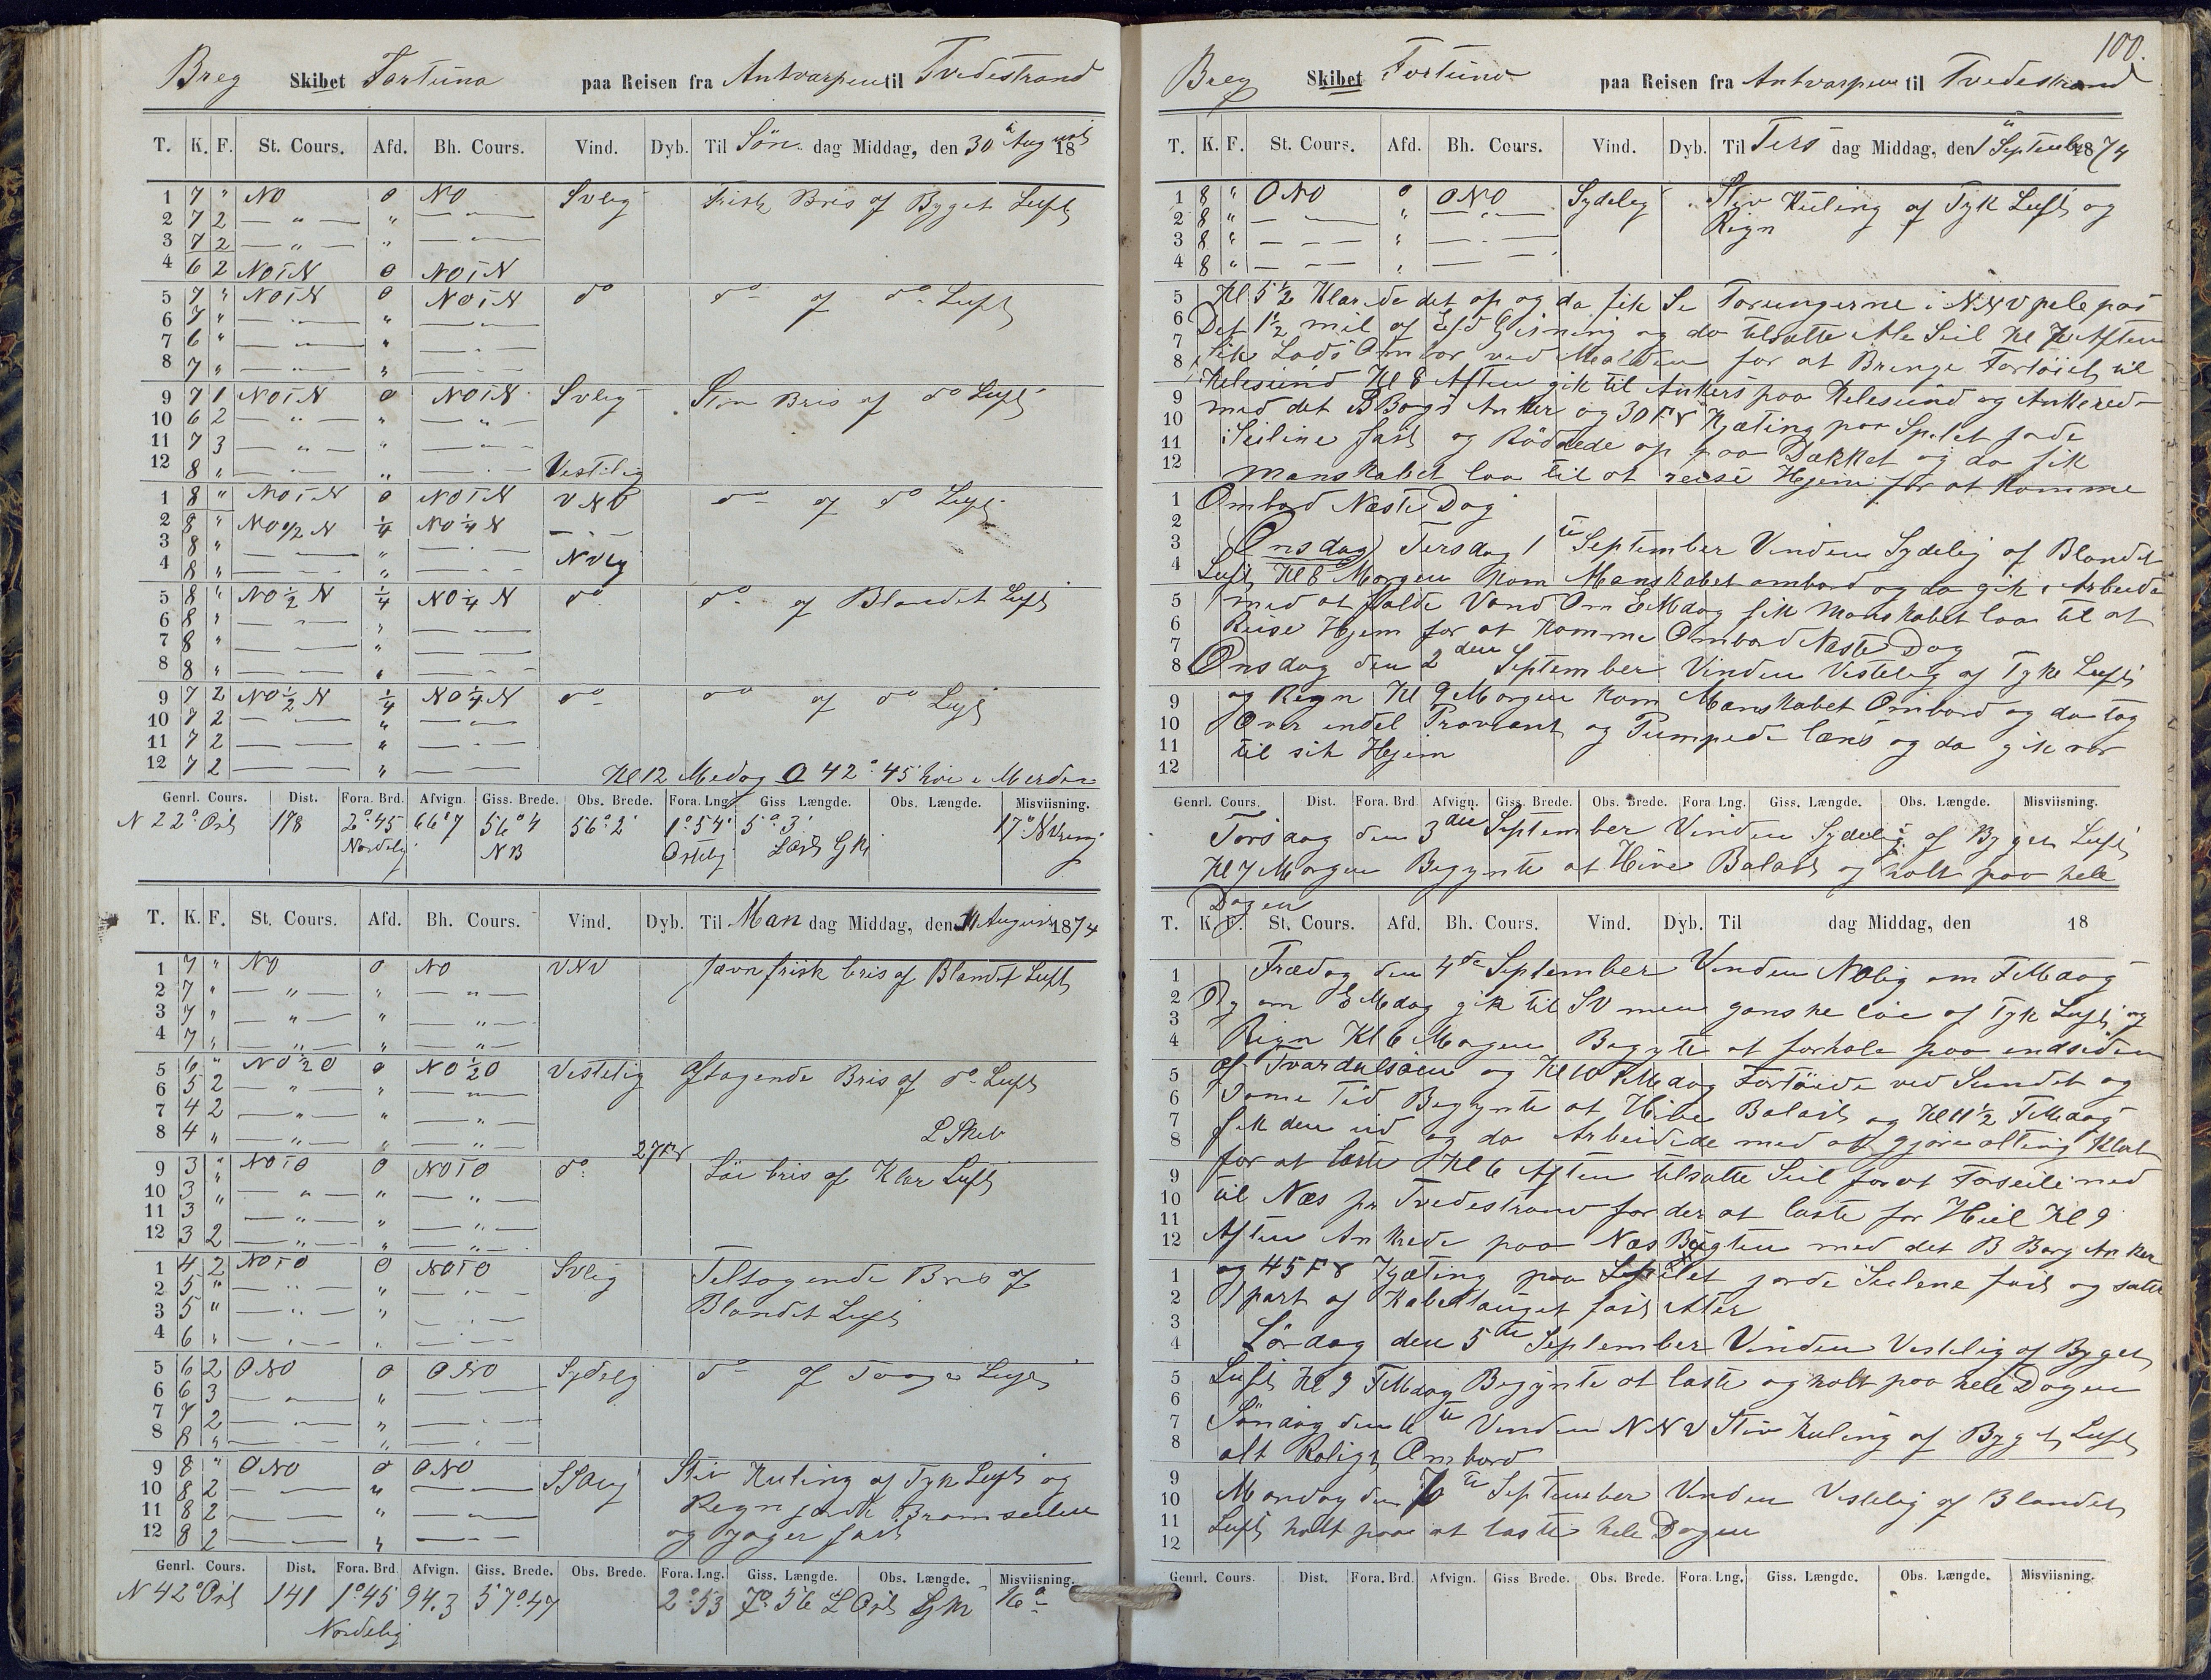 Breg Skibet Fortuna paa Reisen fra Antvarpen til Tvedestrand
T. K. F. St. Cours. Afd. Bh. Cours. Vind. Dyb. Til Søn dag Middag, den 30 August 18
1 7 " NO 0 NO SVlig Frisk Bris af Byget Luft
2 7 2 — " — " — " —
3 7 2 — " — " — " —
4 6 2 NOTN 0 NOTN
5 7 " NOTN 0 NOTN do do af do Luft
6 7 " — " — " — " —
7 6 " — " — " — " —
8 7 " — " — " — " —
9 7 1 NOTN 0 NOTN SVlig Stiv Bris af do Luft
10 6 2 — " — " — " —
11 7 3 — " — " — " —
12 8 " — " — " — " — Vestelig
1 8 " NOTN 0 NOTN VNV do af do Luft
2 8 " NO 1/2 N 1/4 NO 1/4 N —
3 8 " — " — " — " —
4 8 " — " — " — " — NVlig
5 8 " NO 1/2 N 1/4 NO 1/4 N do do af Blandet Luft
6 8 " — " — " — " —
7 8 " — " — " — " —
8 8 " — " — " — " —
9 7 2 NO 1/2 N 1/4 NO 1/4 N do do af do Luft
10 7 2 — " — " — " —
11 7 2 — " — " — " —
12 7 2 — " — " — " —
Kl 12 Medag 42° 45' höi i Merdian
Genrl. Cours. Dist. Fora. Brd. Afvign. Giss. Brede. Obs. Brede. Fora. Lng. Giss Længde. Obs. Længde. Misviisning.
N 22° Ost 178 2° 45 66' 7 56° 4 56° 2' 1° 54' 5° 3' 17°
Nordelig NB Ostelig
T. K. F. St. Cours. Afd. Bh. Cours. Vind. Dyb. Til Man dag Middag, den 31 August 1874
1 7 " NO 0 NO VNV Jævn frisk bris af Blandet Luft
2 7 " — " — " — " —
3 7 " — " — " — " —
4 7 " — " — " — " —
5 6 " NO 1/2 O 0 NO 1/2 O Vestelig Aftagende Bris af do Luft
6 5 2 — " — " — " —
7 4 2 — " — " — " —
8 4 " — " — " — " — 27 Fv
9 3 " NOTO 0 NOTO do Löi bris af Klar Luft
10 3 " — " — " — " —
11 3 " — " — " — " —
12 3 2 — " — " — " —
1 4 2 NOTO 0 NOTO SVlig Teltagende Bris af
2 5 " — " — " — " — Blandet Luft
3 5 " — " — " — " —
4 6 " — " — " — " —
5 6 2 ONO 0 ONO Sydelig do af Taage Luft
6 6 3 — " — " — " —
7 7 2 — " — " — " —
8 8 " — " — " — " —
9 8 " ONO 0 ONO Stiv Kuling af Tyk Luft og
10 8 2 — " — " — " — Regn Bramseilene
11 8 2 — " — " — " — og Jager fast
12 8 2 — " — " — " —
Genrl. Cours. Dist. Fora. Brd. Afvign. Giss. Brede. Obs. Brede. Fora. Lng. Giss. Længde. Obs. Længde. Misviisning.
N 42° Ost 141 1° 45 94.3 57° 47 2° 53 7° 56 16°
Nordelig
100.
Breg Skibet Fortuna paa Reisen fra Antvarpen til Tvedestrand
T. K. F. St. Cours. Afd. Bh. Cours. Vind. Dyb. Til Ters dag Middag, den 1 September 1874
1 8 " ONO 0 ONO Sydelig Styv Kuling af Tyk Luft og
2 8 " — " — " — " — Regn
3 8 " — " — " — " —
4 8 " — " — " — " —
5 Kl 5 1/2 Klarede det op og da fik Se Torungerne i NNV pele paa
6 Det 1 1/2 mil af Gisning og da tilsatte Ale Seil Kl 7 Aften
7 fik Lods Ombor ved for at Bringe Fartöiet til
8 Kilesund Kl 8 Aften gik til Ankers paa Kilesund og Ankered
9 med det BBogs Anker og 30 Fv Kjæting paa Spelet jorde
10 Seilene fast og Röddede op paa Dækket og da fik
11 Manskabet laa til at reise Hjem for at Komme
12 Ombord Neste Dag
Onsdag) Tersdag 1te September Vinden Sydelig af Blandet
Luft Kl 8 Morgen kom Manskabet ombord og da gik i Arbeide
med at Vand Om EMdag fik Manskabet laa til at
Reise Hjem for at Komme Ombord Neste Dag
Onsdag den 2den September Vinden Vestelig af Tyk Luft
og Regn Kl 9 Morgen kom Manskabet Ombord og da tog
Over endel Proviant og Pumpede læns og da gik vor
til sit Hjem
Genrl. Cours. Dist. Fora. Brd Afvign. Giss. Brede. Obs. Brede. Fora Lng. Giss. Længde. Obs. Længde. Misviisning.
Torsdag den 3die September Vinden Sydelig af Byget Luft
Kl 7 Morgen Begynte at Hive Balast og holt paa hele
Dagen
T. K. F. St. Cours. Afd. Bh. Cours. Vind. Dyb. Til dag Middag, den 18
Fredag den 4de September Vinden NOlig om FMdag
Og om EMdag gik til SV men ganske löi af Tyk Luft og
Regn Kl 6 Morgen Begynte at forhale paa indsiden
af Tvardalsöen og Kl 10 FMdag Fortöiede ved Sundet og
Same Tid Begynte at Hive Balast og Kl 11 1/2 FMdag
fik den ud og da Arbeidede med at gjöre alting Klart
for at laste Kl 6 Aften tilsatte Seil for at Forseile ned
til Næs pr Tvedestrand for der at laste for Hiel Kl 9
Aften Ankrede paa Næs Bugten med det B Borg Anker
og 45 Fv Kjæting paa Spelet jorde Seilene fast og satte
1 part af Kabeltauget fast Atter
Lördag den 5te September Vinden Vestelig af Byget
Luft Kl 9 FMdag Begynte at laste og holt paa hele Dagen
Söndag den 6te Vinden NNV Stiv Kuling af Byget Luft
alt Roligt Ombord
Mandag den 7te September Vinden Vestelig af Blandet
Luft holt paa at laste hele Dagen
Genrl. Cours. Dist. Fora. Brd. Afvign. Giss Brede. Obs. Brede. Fora. Lng. Giss. Længde. Obs. Længde. Misviisning.